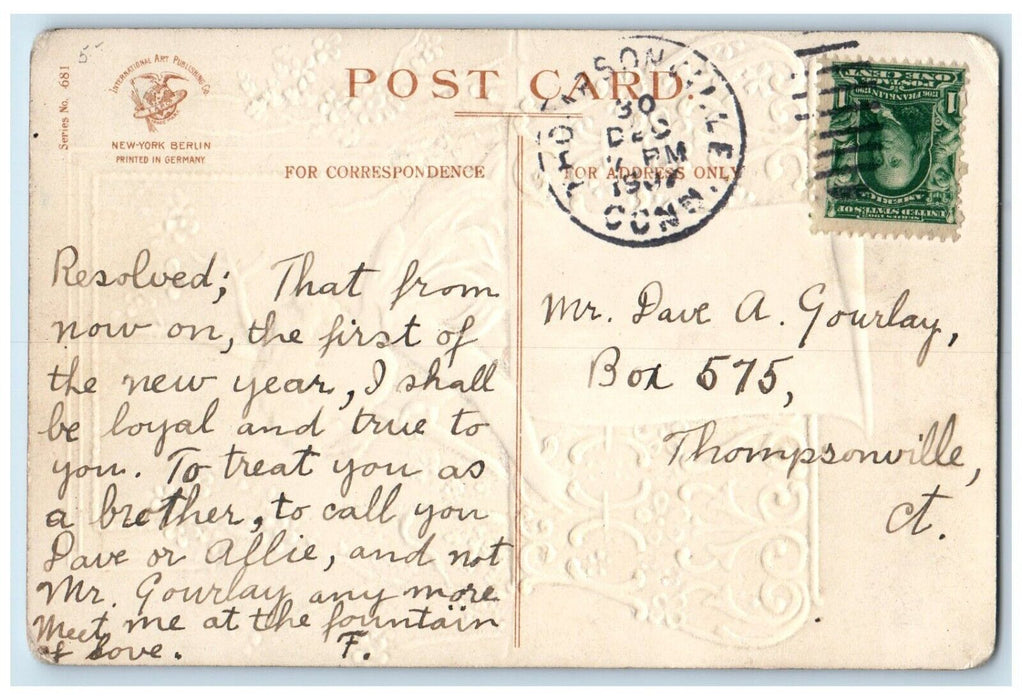 5-
Series No. 681
INTERNATIONAL ART PUBLISHING Co.
NEW-YORK BERLIN
PRINTED IN GERMANY
POST CARD.
FOR CORRESPONDENCE
FOR ADDRESS ONLY
THOMPSONVILLE
30
DEC
7 PM
1907
CONN.
SERIES 1902
UNITED STATES OF
AMERICA
1 1
POSTAGE
ONE CENT
Resolved; That from
now on, the first of
the new year, I shall
be loyal and true to
you. To treat you as
a brother, to call you
Dave or Allie, and not
Mr. Gourlay any more
Meet me at the fountain
of Love. F.
Mr. Dave A. Gourlay,
Box 575,
Thompsonville,
Ct.